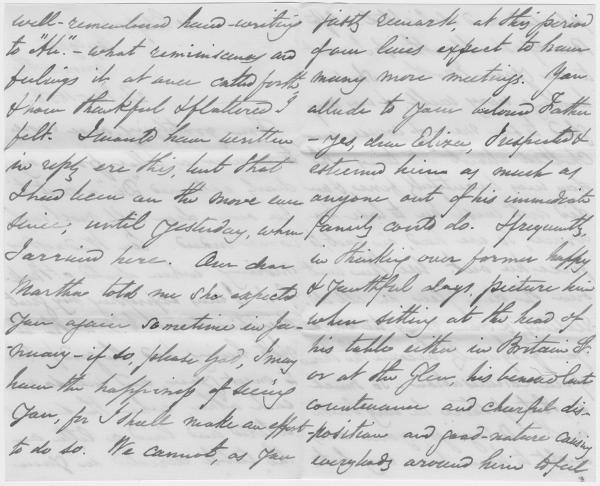 well-remembered hand-writing
to "Ah." - what reminiscences and
feelings it at once called forth
& how thankful & flattered I
felt. I would have written
in reply ere this, but that
I had been on the move ever
since, until yesterday, when
I arrived here. Our dear
Martha told me she expected
you again sometime in Ja-
nuary - if so, please God, I may
have the happiness of seeing
you, for I shall make an effort
to do so. We cannot, as you
justly remark, at this period
of our lives expect to have
many more meetings. You
allude to your beloved Father
- yes, dear Eliza, I respected &
esteemed him as much as
anyone out of his immediate
family could do. I frequently,
in thinking over former happy
& youthful days, picture him
when sitting at the head of
his table either in Britain St.
or at the Glen, his benevolent
countenance and cheerful dis-
position and good-nature causing
everybody around him to feel